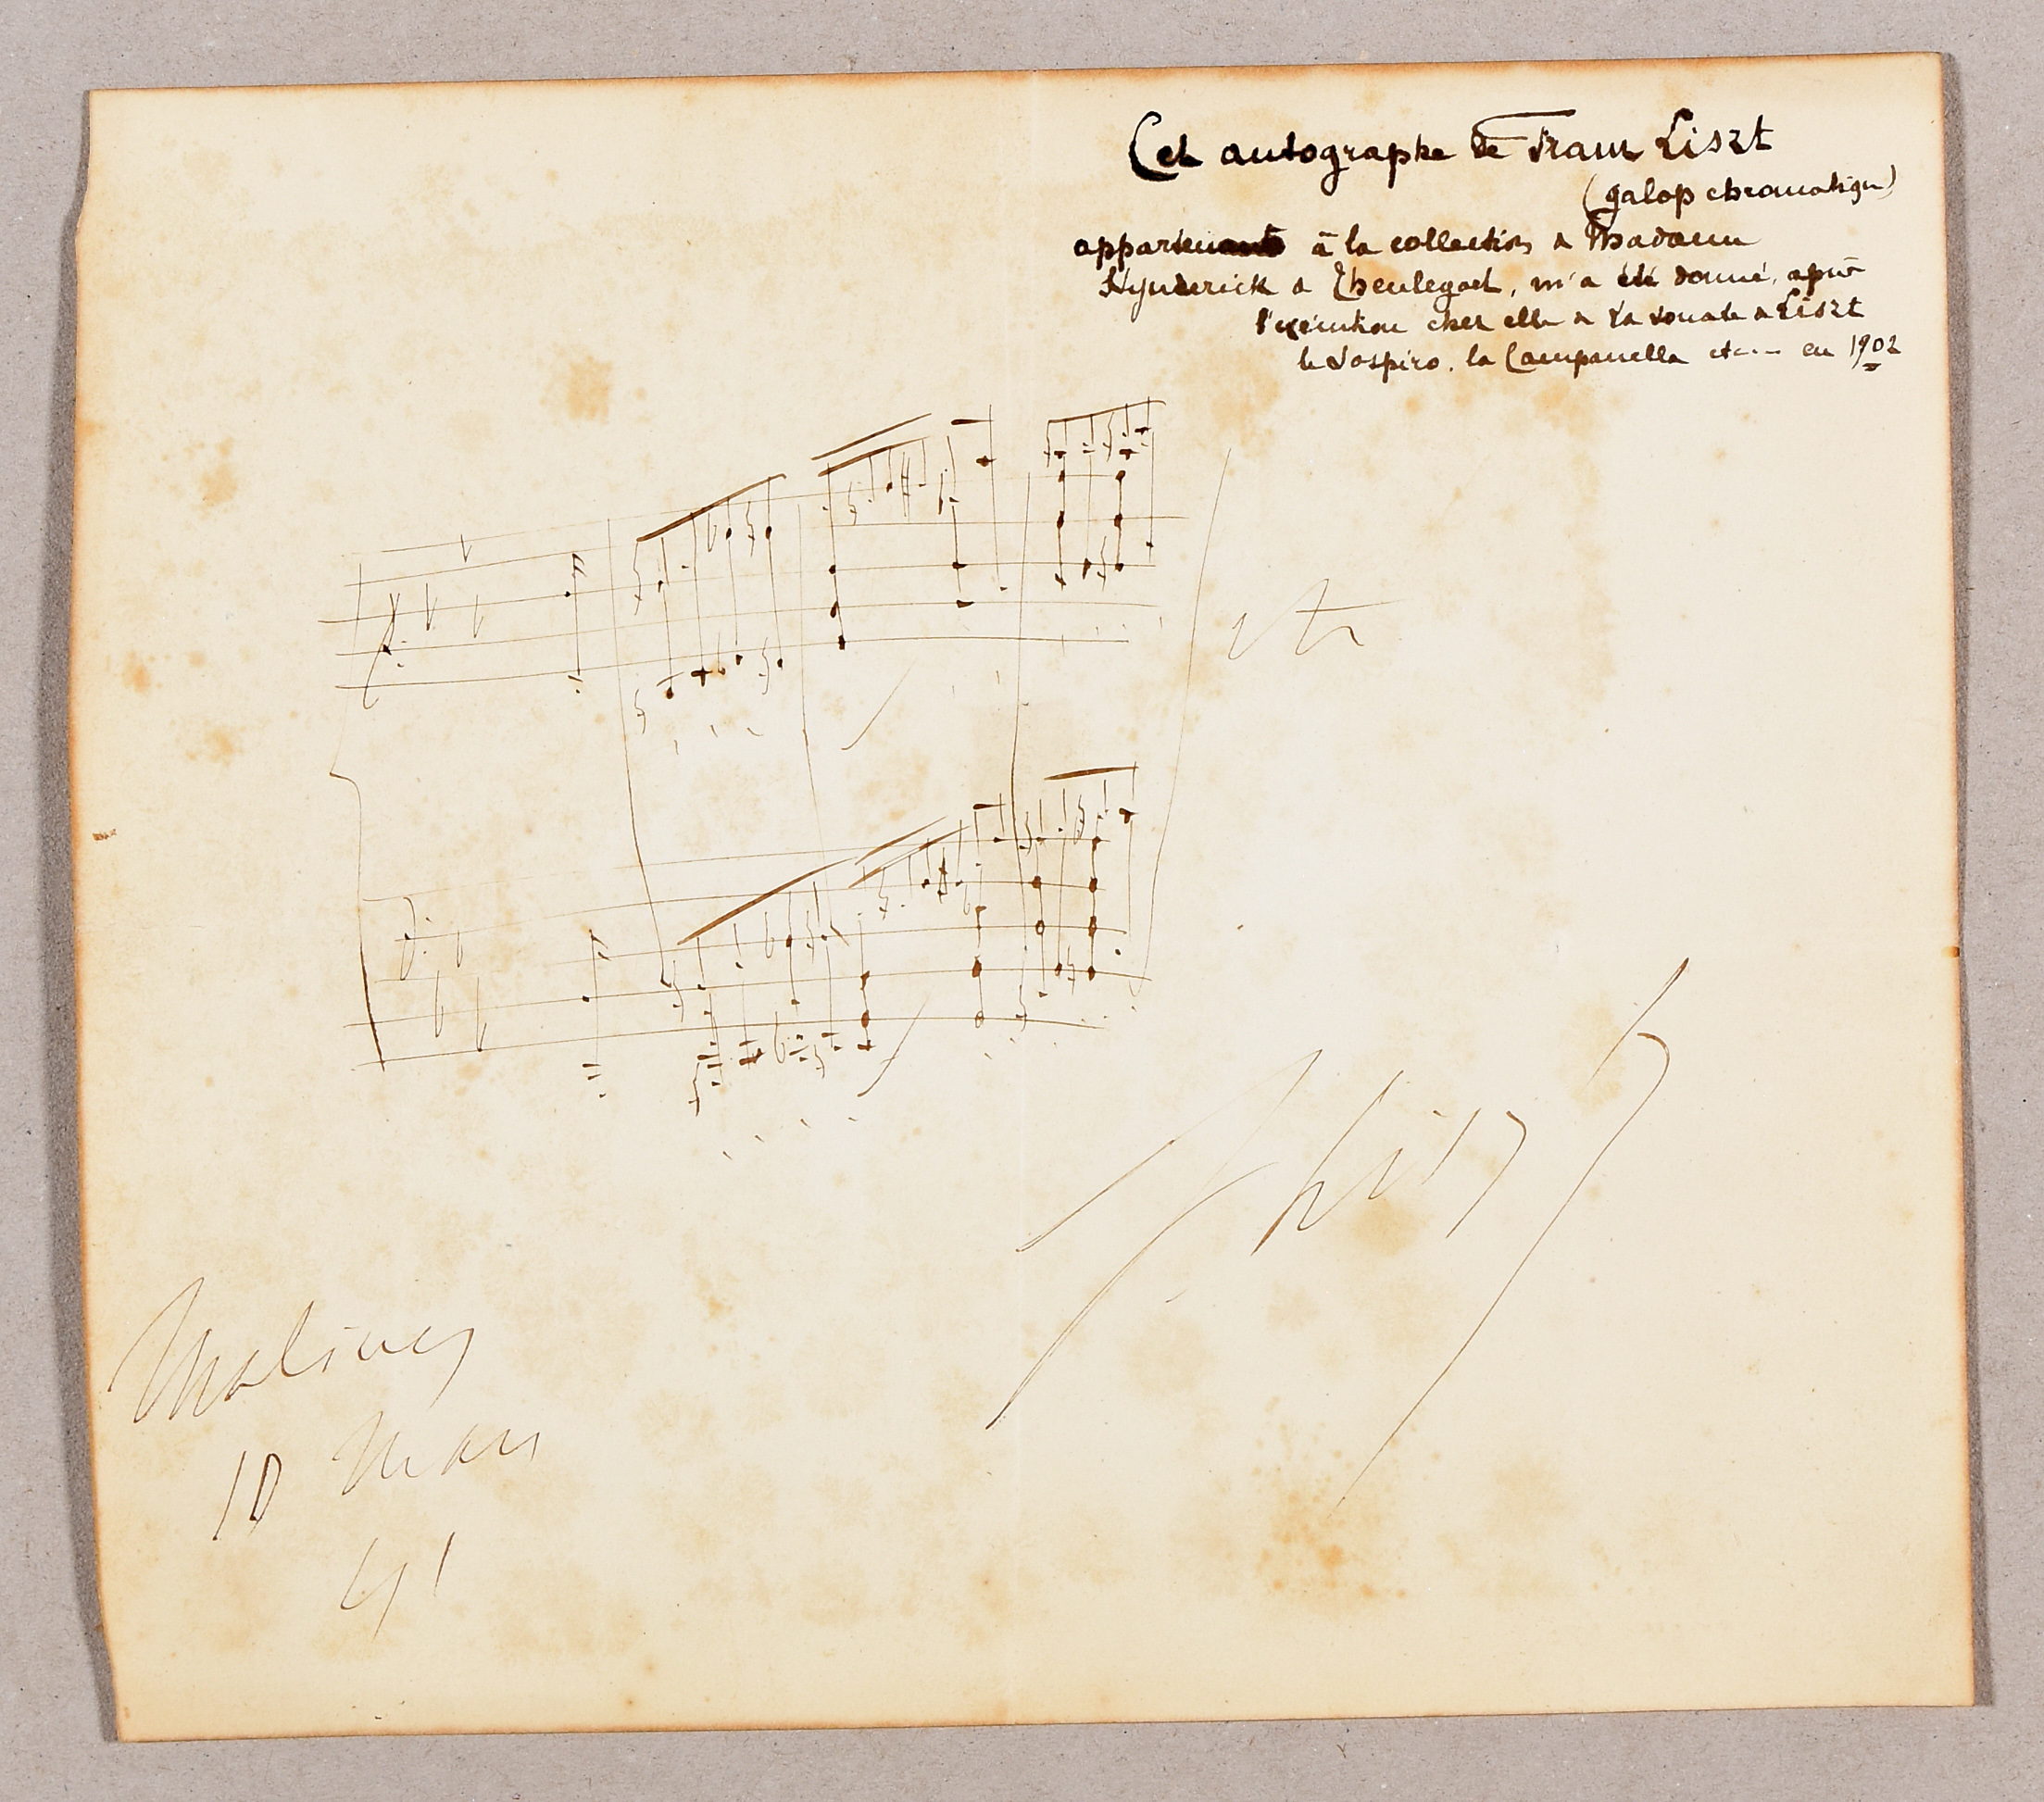 Cet autographe de Franz Liszt
(galop chromatique)
appartenant à la collection de Madame
Hynderick de Theulegoet, m'a été donné, après
l'exécution chez elle de la sonate de Liszt
le Sospiro, la Campanella etc... en 1902
etc
FLiszt
Malines
10 Mars
41